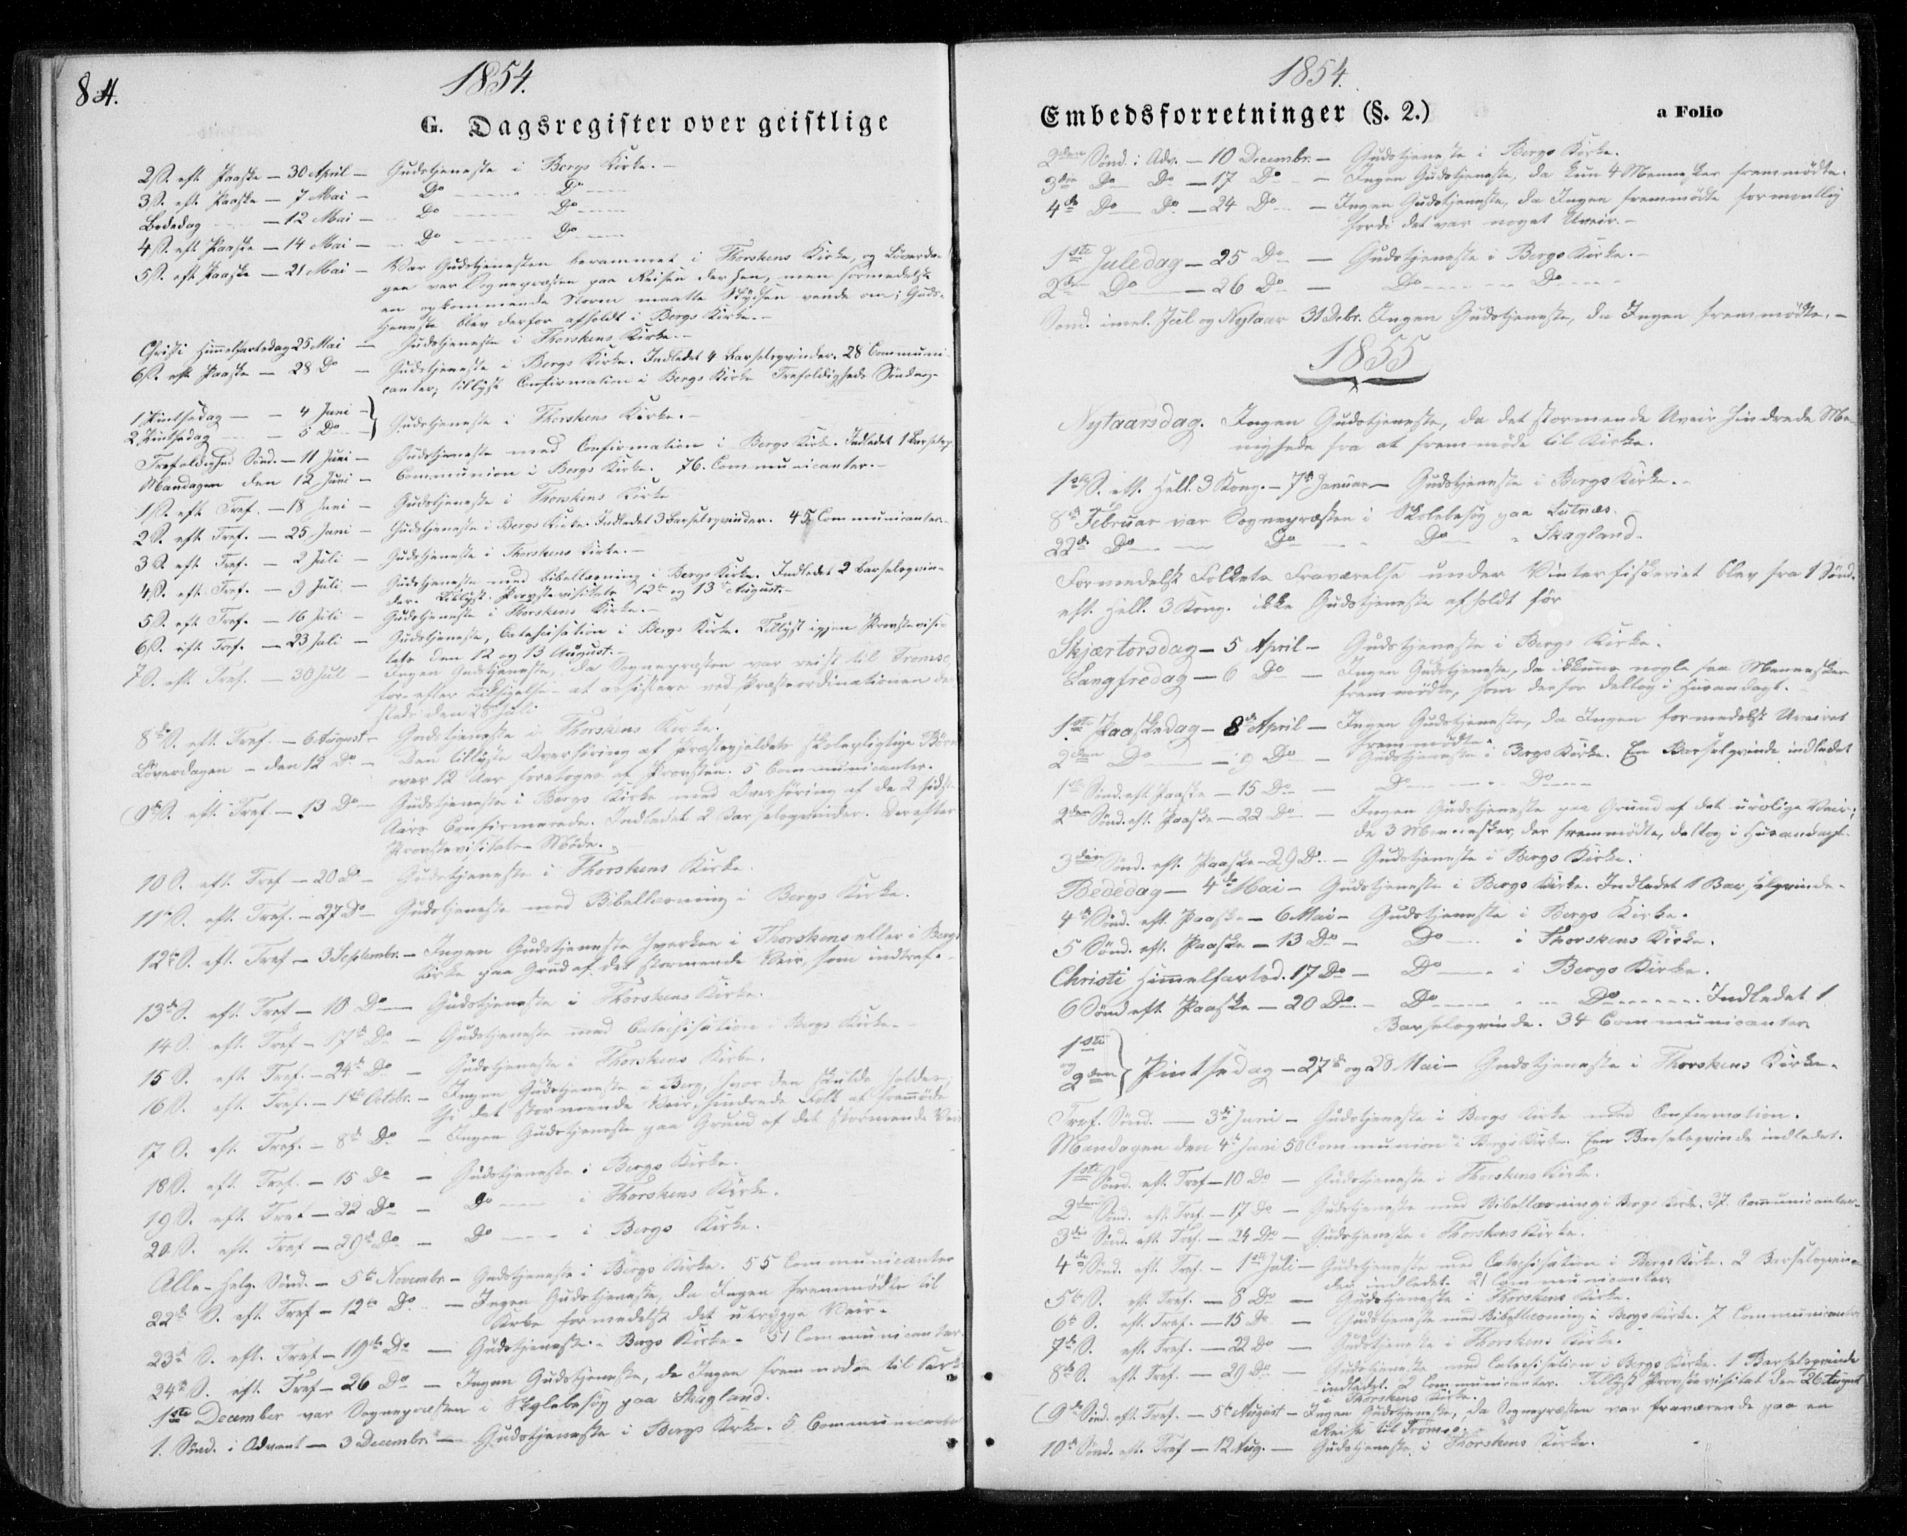 84.
1854.
G. Dagsregister over geistlige
2 S. eft. Paaske — 30 April — Gudstjeneste i Bergs Kirke. —
3 S. eft. Paaske — 7 Mai — Do Do
Bededag — 12 Mai — Do Do
4 S. eft. Paaske — 14 Mai — Do Do
5 S. eft. Paaske — 21 Mai — Var Gudstjenesten berammet i Thorskens Kirke, og Löverda-
gen var Sognepræsten paa Reisen derhen, men formedelst
en opkommende Storm maatte Skydsen vende om; Guds-
tjeneste blev derfor afholdt i Bergs Kirke. —
Christi Himmelfartsdag 25 Mai — Gudstjeneste i Thorskens Kirke. —
6 S. eft. Paaske — 28 Do — Gudstjeneste i Bergs Kirke. Indledet 4 Barselqvinder. 28 Communi-
canter, tillyst Confirmation i Bergs Kirke Trefoldigheds Søndag —
1 Pintsedag — 4 Juni —
2 Pintsedag — 5 Do — } Gudstjeneste i Thorskens Kirke. —
Trefoldighed Sönd. — 11 Juni — Gudstjeneste med Confirmation i Bergs Kirke. Indledet 1 Barselqv.
Mandagen den 12 Juni — Communion i Bergs Kirke. 76 Communicanter. —
1 S. eft. Tref. — 18 Juni — Gudstjeneste i Thorskens Kirke
2 S. eft. Tref. — 25 Juni — Gudstjeneste i Bergs Kirke. Indledet 3 Barselqvinder. 45 Communicanter.
3 S. eft. Tref. — 2 Juli — Gudstjeneste i Thorskens Kirke. —
4 S. eft. Tref. — 9 Juli — Gudstjeneste med Bibellæsning i Bergs Kirke. Indledet 2 Barselqvin-
der. Tillyst Provstevisitats 12te og 13 August. —
5 S. eft. Tref. — 16 Juli — Gudstjeneste i Thorskens Kirke. —
6 S. eft. Tref. — 23 Juli — Gudstjeneste, Catechisation i Bergs Kirke. Tillyst igjen Provstevisi-
tats den 12 og 13 August. —
7 S. eft. Tref. — 30 Juli — Ingen Gudstjeneste, da Sognepræsten var reist til Tromsø,
for efter Tilsigelse at assistere ved Præsteordinationen der-
steds den 28 Juli.
8de S. eft. Tref. — 6 August — Gudstjeneste i Thorskens Kirke.
Löverdagen — den 12 Do — Den tillyste Overhöring af Præstegjeldets skolepligtige Börn
over 12 Aar foretoges af Provsten. 5 Communicanter.
(9de S. eft. Tref. — 13 Do — Gudstjeneste i Bergs Kirke med Overhöring af de 2 sidste
Aars Confirmerede. Indledet 2 Barselqvinder. Derefter
Provstevisitats-Möde.
10 S. eft. Tref — 20 Do — Gudstjeneste i Thorskens Kirke.
11te S. eft. Tref. — 27 Do — Gudstjeneste med Bibellæsning i Bergs Kirke.
12te S. eft. Tref — 3 Septembr. — Ingen Gudstjeneste hverken i Thorskens eller i Bergs
Kirke paa Grund af det stormende Veir, som indtraf. —
13de S. eft. Tref — 10 Do — Gudstjeneste i Thorskens Kirke.
14 S. eft. Tref — 17de Do — Gudstjeneste med Catechisation i Bergs Kirke. —
15 S. eft. Tref. — 24de Do — Gudstjeneste i Thorskens Kirke.
16 S. eft. Tref. — 1ste Octobr. — Ingen Gudstjeneste i Berg, hvor den skulde holdes,
thi det stormende Veir hindrede Folk at fremmöde
17 S. eft. Tref. — 8de Do — Ingen Gudstjeneste paa Grund af det stormende Veir
18 S. eft. Tref. — 15 Do — Gudstjeneste i Bergs Kirke.
19 S. eft. Tref — 22 Do — Do i Thorskens Kirke.
20 S. eft. Tref — 29de Do — Do i Bergs Kirke.
Alle-Helg. Sönd. — 5te Novembr — Gudstjeneste i Bergs Kirke. 55 Communicanter
22de S. eft. Tref — 12te Do. — Ingen Gudstjeneste, da Ingen fremmödte til
Kirke formedelst det utrygge Veir. —
23de S. eft. Tref — 19de Do — Gudstjeneste i Bergs Kirke. 51 Communicanter.
24de S. eft. Tref — 26 Do — Ingen Gudstjeneste, da Ingen fremmødte til Kirke
1ste December var Sognepræsten i Skolebesög paa Skagland.
1. Sönd. i Advent — 3 Decembr. — Gudstjeneste i Bergs Kirke. 5 Communicanter
1854.
Embedsforretninger (§. 2.)
a Folio
2den Sönd. i Adv. — 10 Decembr. — Gudstjeneste i Bergs Kirke.
3die Do Do — 17 Do — Ingen Gudstjeneste, da kun 4 Mennesker fremmödte.
4de Do Do — 24 Do — Ingen Gudstjeneste, da Ingen fremmödte formentlig
fordi det var noget Uveir. —
1ste Juledag — 25 Do — Gudstjeneste i Bergs Kirke. —
2den Do — 26 Do — Do Do
Sönd. imel. Jul og Nytaar 31 Debr. Ingen Gudstjeneste, da Ingen fremmödte. —
1855
Nytaarsdag. Ingen Gudstjeneste, da det stormende Uveir hindrede Me-
nighede fra at fremmöde til Kirke.
1ste S. eft. Hell. 3 Kong. — 7de Januar — Gudstjeneste i Bergs Kirke. —
8de Februar var Sognepræsten i Skolebesög paa Lutnæs.
22de Do Do Do Skagland.
Formedelst Folkets Fraværelse under Vinterfiskeriet blev fra 1 Sönd.
eft. Hell. 3 Kong. ikke Gudstjeneste afholdt för
Skjærtorsdag — 5 April — Gudstjeneste i Bergs Kirke.
Langfredag — 6 Do — Ingen Gudstjeneste, da ikkuns nogle faa Mennesker
fremmödte, som derfor deltog i Husandagt.
1ste Paaskedag — 8de April — Ingen Gudstjeneste, da Ingen formedelst Uveiret
fremmödte.
2den Do — 9 Do — Gudstjeneste i Bergs Kirke. En Barselqvinde indledet
1ste Sönd. eft. Paaske — 15 Do — Do Do
2den Sönd. eft. Paaske — 22 Do — Ingen Gudstjeneste paa Grund af det urolige Veir;
de 3 Mennesker, der fremmödte, deltog i Husandagt.
3die Sönd. eft. Paaske — 29 Do. — Gudstjeneste i Bergs Kirke.
Bededag — 4de Mai — Gudstjeneste i Bergs Kirke. Indledet 1 Barselqvinde.
4de Sönd. eft. Paaske — 6 Mai — Gudstjeneste i Bergs Kirke.
5 Sönd. eft. Paaske — 13 Do — Do i Thorskens Kirke.
Christi Himmelfartsd. 17 Do — Do i Bergs Kirke.
6 Sönd eft. Paaske — 20 Do. — Do Do Indledet 1
Barselqvinde. 34 Communicanter
1ste
og
2den } Pintsedag — 27de og 28 Mai — Gudstjeneste i Thorskens Kirke.
Tref. Sönd. — 3de Juni — Gudstjeneste i Bergs Kirke med Confirmation.
Mandagen den 4de Juni 50 Communion i Bergs Kirke. En Barselqvinde indledet.
1ste Sönd. eft. Tref — 10 Do — Gudstjeneste i Thorskens Kirke.
2den Sönd. eft. Tref — 17 Do — Gudstjeneste med Bibellæsning i Bergs Kirke. 37 Communicanter.
3die Sönd. eft. Tref. — 24 Do — Gudstjeneste i Thorskens Kirke.
4de Sönd. eft. Tref. — 1ste Juli — Gudstjeneste med Catechisation i Bergs Kirke. 2 Barselqvin-
der indledet. 21 Communicanter.
5te S. eft. Tref. — 8 Do — Gudstjeneste i Thorskens Kirke.
6te S. eft. Tref. — 15 Do — Gudstjeneste med Bibellæsning i Bergs Kirke. 7 Communicanter
7de S. eft. Tref. — 22 Do — Gudstjeneste i Thorskens Kirke.
8de S. eft. Tref. — 29 Do — Gudstjeneste med Catechisation i Bergs Kirke. 1 Barselqvinde
indledet. 2 Communicanter. Tillyst Provstevisitats den 26 August
i Thorskens Kirke.
(9de Sönd. eft. Tref. — 5te August — Ingen Gudstjeneste, da Sognepræsten var fraværende paa en
Reise til Tromsø.
10de Sönd. eft. Tref — 12 Aug. — Gudstjeneste i Thorskens Kirke.